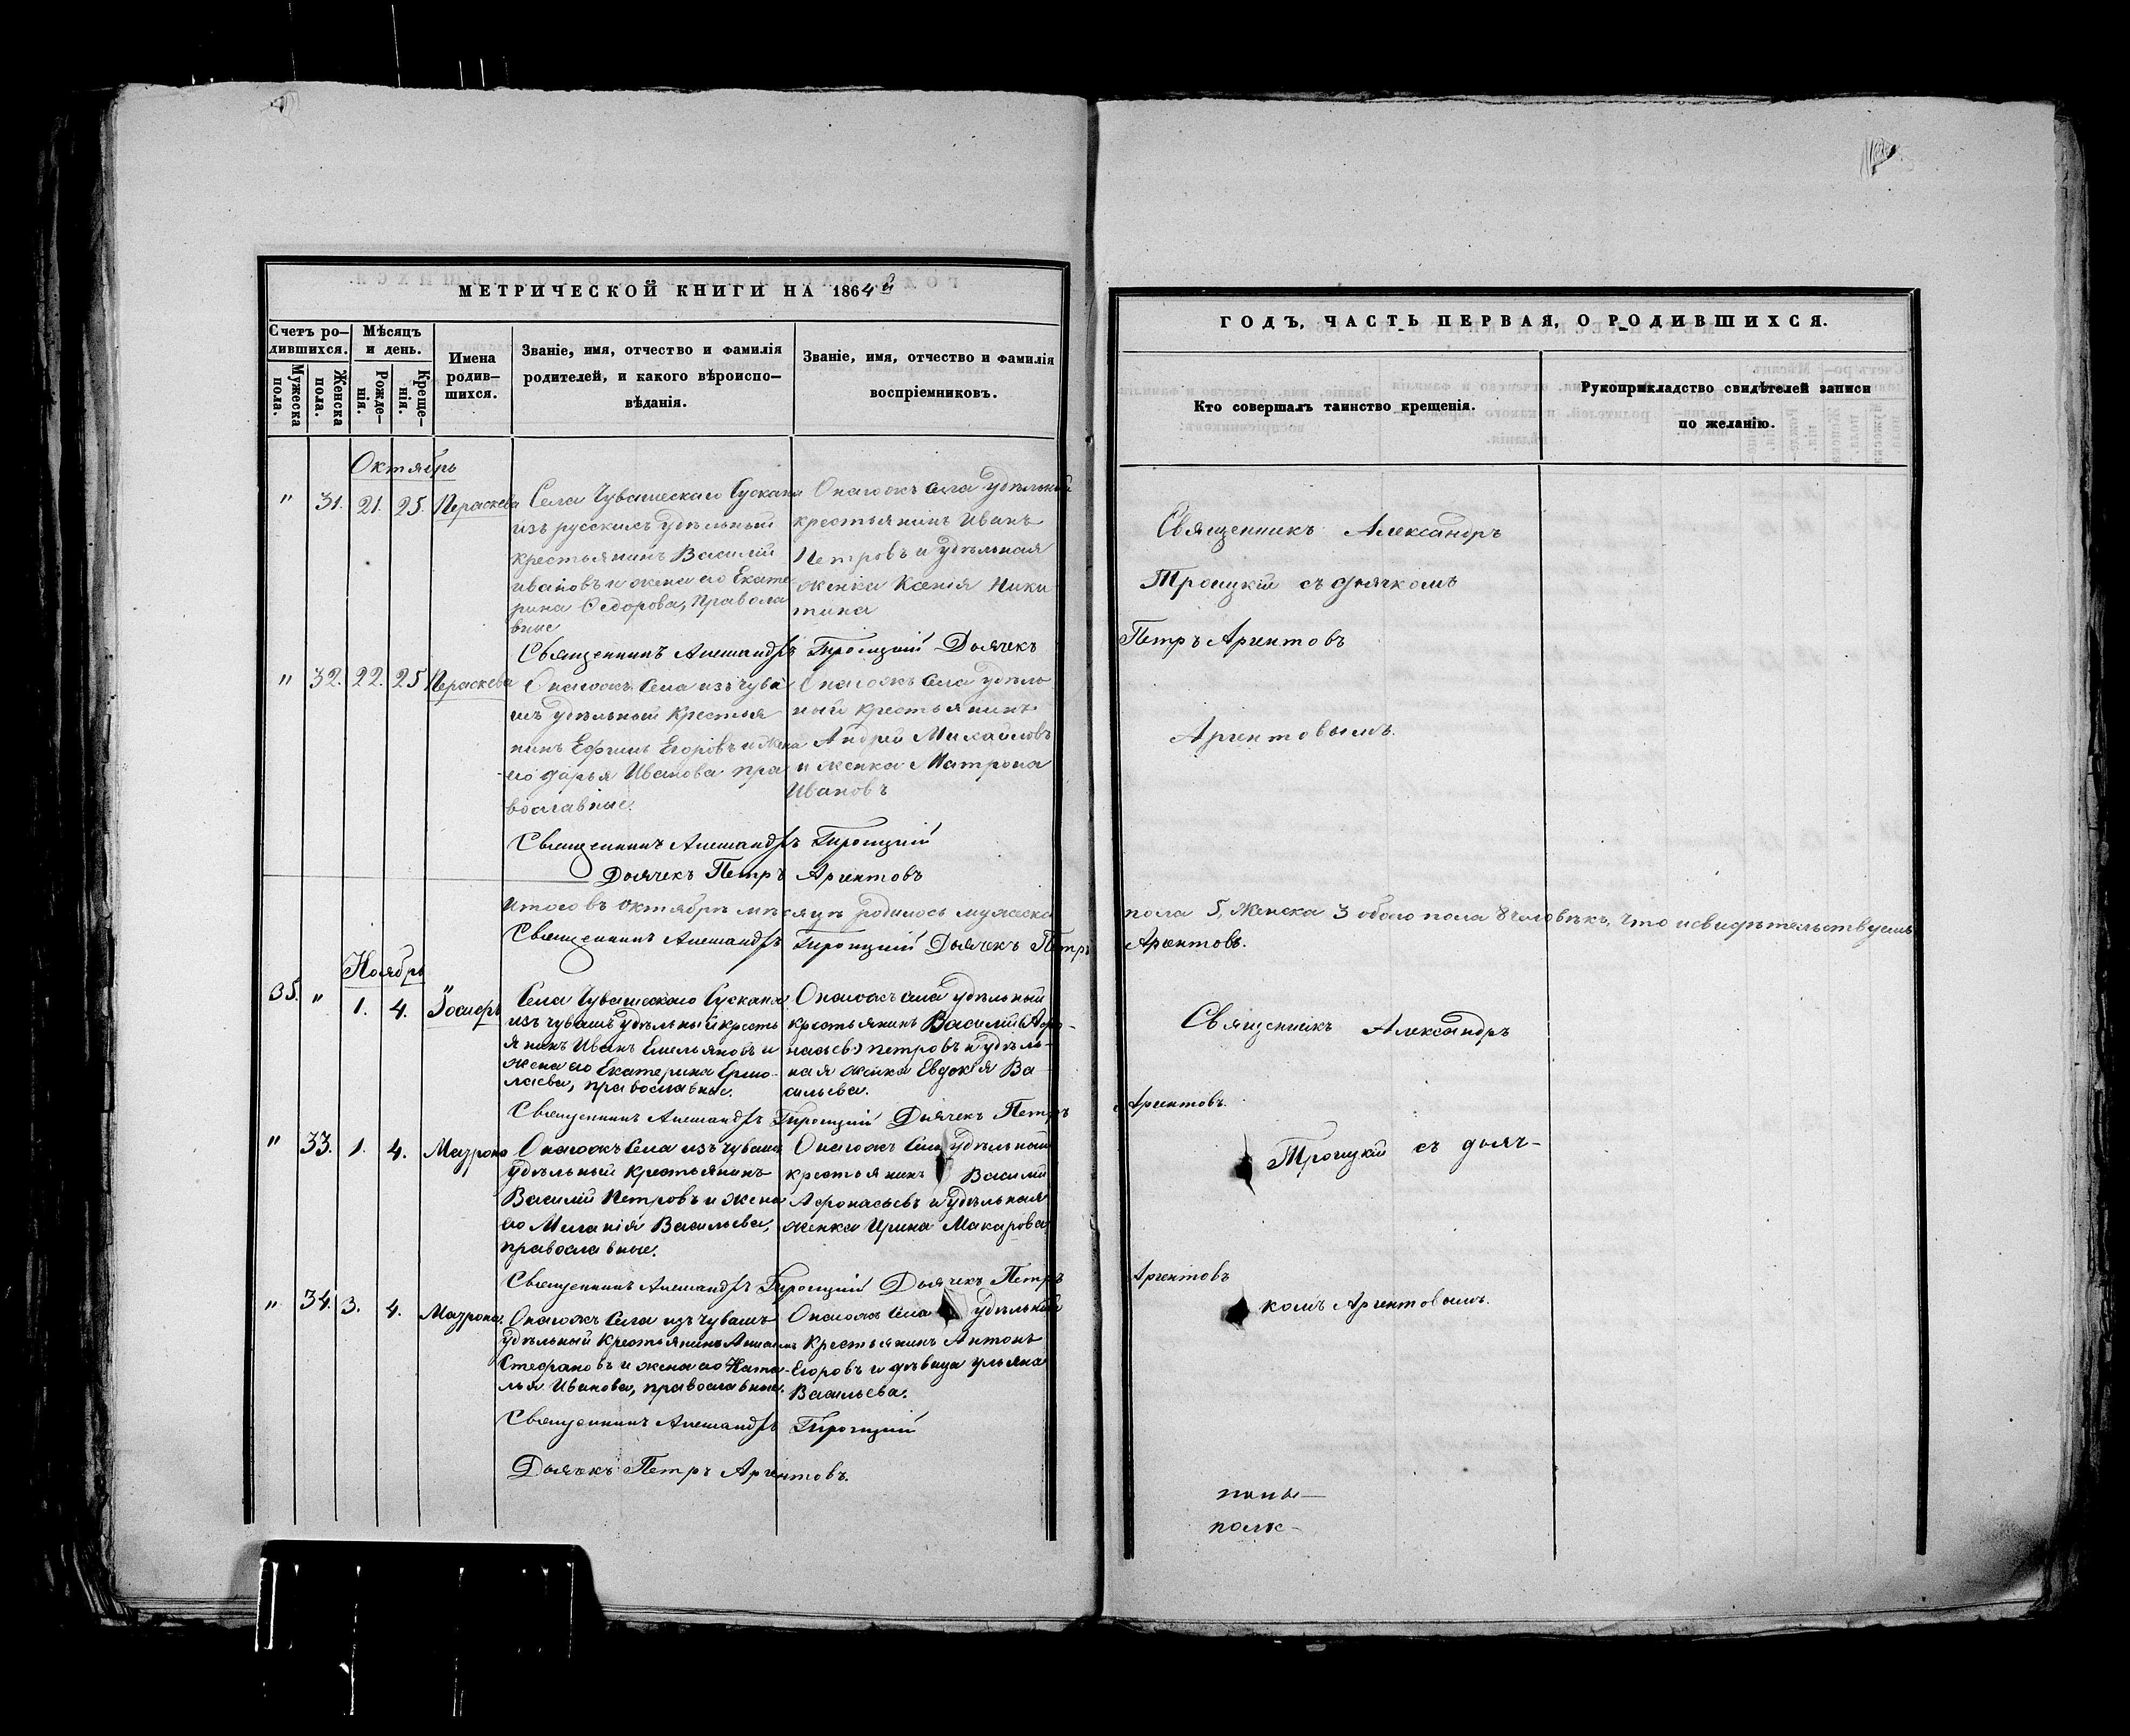 МЕТРИЧЕСКОЙ КНИГИ НА 1864й
Счетъ ро-
дившихся.
Мужеска
пола.
Женска
пола.
Мѣсяцъ
и день.
Рожде-
нія.
Креще-
нія.
Имена
родив-
шихся.
Званіе, имя, отчество и фамилія
родителей, и какого вѣроиспо-
вѣданія.
Званіе, имя, отчество и фамилія
воспріемниковъ.
Октябрь
" 31. 21. 25. Пераскева
Села Чувашескаго Сускана
изъ русскихъ удѣльный
крестьянинъ Василій
ивановъ и жена его Екате
рина Ѳедорова, Правосла
вные
Онагожъ села удѣльный
крестьянинъ Иванъ
Петровъ и удѣльная
женка Ксенія Ники
тина
Священникъ Александръ Троицкій Дьячекъ
" 32. 22. 25 Пераскева
Онагожъ села изъ чува
шъ удѣльный крестья
нинъ Ефимъ Егоровъ и жена
его дарья Иванова пра
вославные.
Онагожъ села удѣль
ный крестьянинъ
Андрей Михайловъ
и женка Матрона
Ивановъ
Священникъ Александръ Троицкій
Дьячекъ Петръ Аргентовъ
Итого въ октябрѣ мѣсяцѣ родилось мужеска
Священникъ Александръ Троицкій Дьячекъ Петръ
Ноябрь
35. " 1. 4. Іосифъ
Села Чувашескаго Сускана
изъ чувашъ удѣльный кресть
янинъ Иванъ Емельяновъ и
жена его Екатерина Ермо-
лаева, православные.
Онагожъ села удѣльный
крестьянинъ Василій (Афо-
насьевъ) петровъ и удѣль-
ная женка Евдокія Ва
сильева.
Священникъ Александръ Троицкій Дьячекъ Петръ
" 33. 1. 4. Маѳрона
Онагожъ села изъ чувашъ
удѣльный крестьянинъ
Василій Петровъ и жена
его Миланія Васильева,
православные.
Онагожъ села удѣльный
крестьянинъ Василий
Афонасьевъ и удѣльная
женка Ирина Макарова
Священникъ Александръ Троицкій Дьячекъ Петръ
" 34. 3. 4. Маѳрона.
Онагожъ села изъ чувашъ
удѣльный крестьянинъ
Стефановъ и жена его Ната-
лья Иванова, православные.
Онагожъ села удѣльный
крестьянинъ Антонъ
Егоровъ и дѣвица ульяна
Васильева.
Священникъ Александръ Троицкій
Дьячекъ Петръ Аргентовъ.
ГОДЪ, ЧАСТЬ ПЕРВАЯ, О РОДИВШИХСЯ.
Кто совершалъ таинство крещенія.
Рукоприкладство свидѣтелей записи
по желанію.
Священникъ Александръ
Троицкій съ дьячкомъ
Петръ Аргентовъ
Аргентовымъ.
пола 5, женска 3 обоего пола 8 человѣкъ, что и свидѣтельствуемъ
Аргентовъ.
Священникъ Александръ
Аргентовъ.
Троицкій съ дьяч-
Аргентовъ
комъ Аргентовымъ.